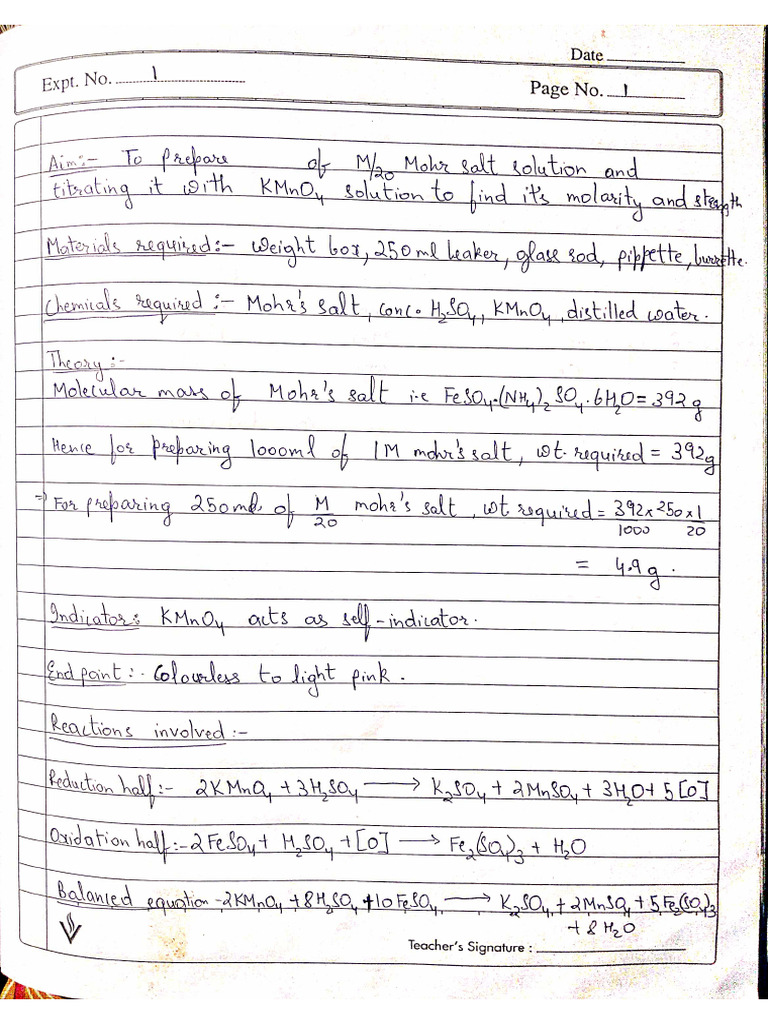 Date
Expt. No. 1
Page No. 1
Aim:- To prepare of M/20 Mohr salt solution and
titrating it with KMnO₄ solution to find it's molarity and strength
Materials required:- Weight box, 250 ml beaker, glass rod, pippette, burrette.
Chemicals required:- Mohr's salt, conc. H₂SO₄, KMnO₄, distilled water.
Theory:-
Molecular mass of Mohr's salt i.e FeSO₄.(NH₄)₂SO₄.6H₂O = 392 g
Hence for preparing 1000ml of 1M mohr's salt, wt. required = 392g
⇒ For preparing 250ml. of M/20 mohr's salt, wt required = 392/1000 × 250 × 1/20
= 4.9 g.
Indicator:- KMnO₄ acts as self-indicator.
End point:- Colourless to light pink.
Reactions involved:-
Reduction half:- 2KMnO₄ + 3H₂SO₄ ⟶ K₂SO₄ + 2MnSO₄ + 3H₂O + 5[O]
Oxidation half:- 2FeSO₄ + H₂SO₄ + [O] ⟶ Fe₂(SO₄)₃ + H₂O
Balanced equation - 2KMnO₄ + 8H₂SO₄ + 10FeSO₄ ⟶ K₂SO₄ + 2MnSO₄ + 5Fe₂(SO₄)₃
+ 8H₂O
Teacher's Signature :